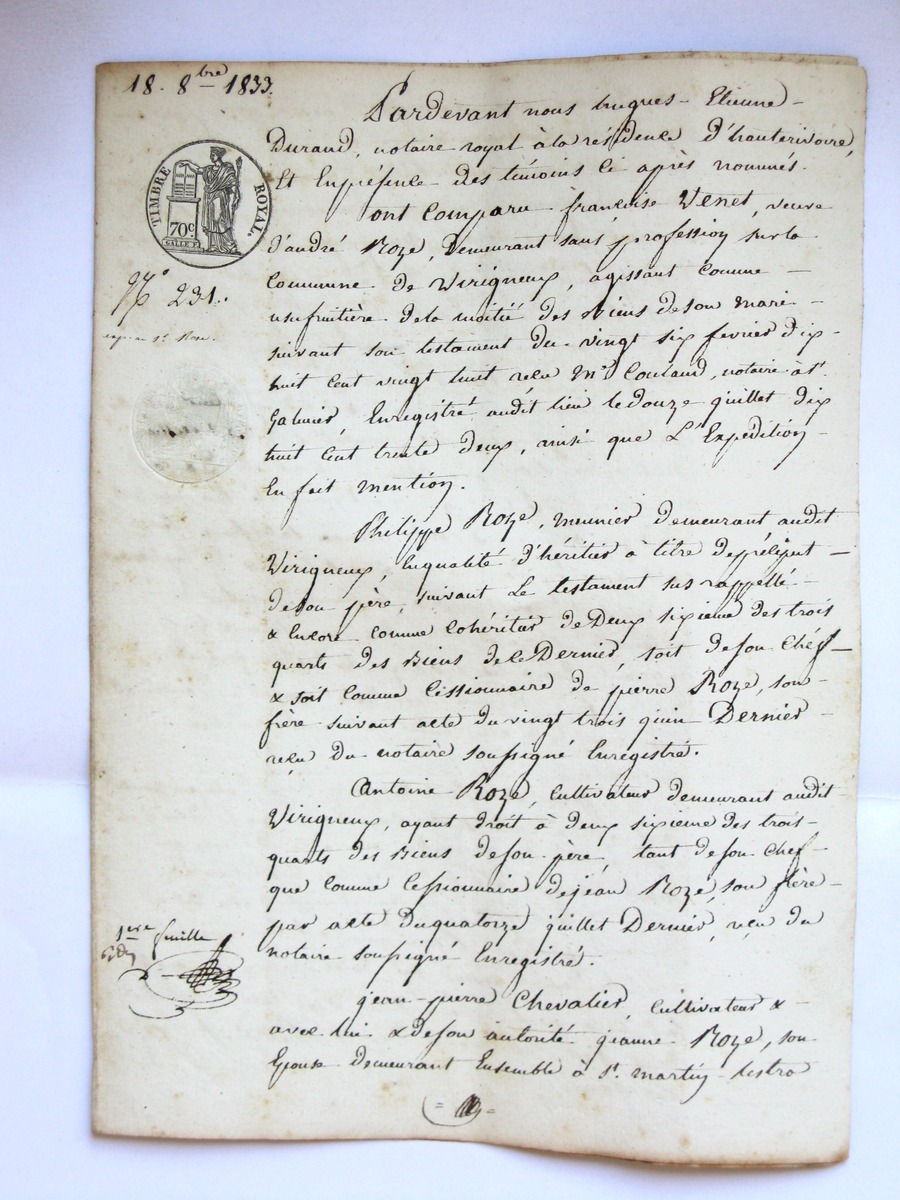 18. 8bre 1833.
Pardevant nous hugues - Etienne -
Durand, notaire royal à la résidence d'hauterivoire,
Et En présence des témoins ci après nommés.
TIMBRE ROYAL.
70c
ont Comparu françoise Venet, veuve
d'andré Roze, Demeurant sans profession sur la
Commune de Virigneux, agissant comme -
usufruitière de la moitié des Biens de son mari -
No 231.
suivant son testament du vingt six fevrier dix
huit cent vingt huit reçu Me Couland, notaire à St
Galmier, Enregistré audit lieu le douze juillet dix
huit Cent trente deux, ainsi que L'Expédition -
En fait mention.
Philippe Roze, meunier demeurant audit
Virigneux, En qualité d'héritier à titre de préciput -
de son père, suivant Le testament sus rappellé -
& Encore comme Cohéritier de Deux sixieme des trois
quarts des Biens de ce Dernier, soit de son Chéf -
& soit Comme Cessionnaire de pierre Roze, son -
frère suivant acte du vingt trois juin Dernier -
reçu du notaire soussigné Enregistré.
Antoine Roze, Cultivateur demeurant audit
Virigneux, ayant droit à deux sixieme des trois -
quarts des Biens de son père, tant de son Chef -
que Comme Cessionnaire de jean Roze, son frère -
par acte du quatorze juillet Dernier, reçu du
notaire soussigné Enregistré.
1ere feuille
jean-pierre Chevalier, Cultivateur & -
avec lui & de son autorité jeanne Roze, son
Epouse demeurant Ensemble à St. martin - lestra